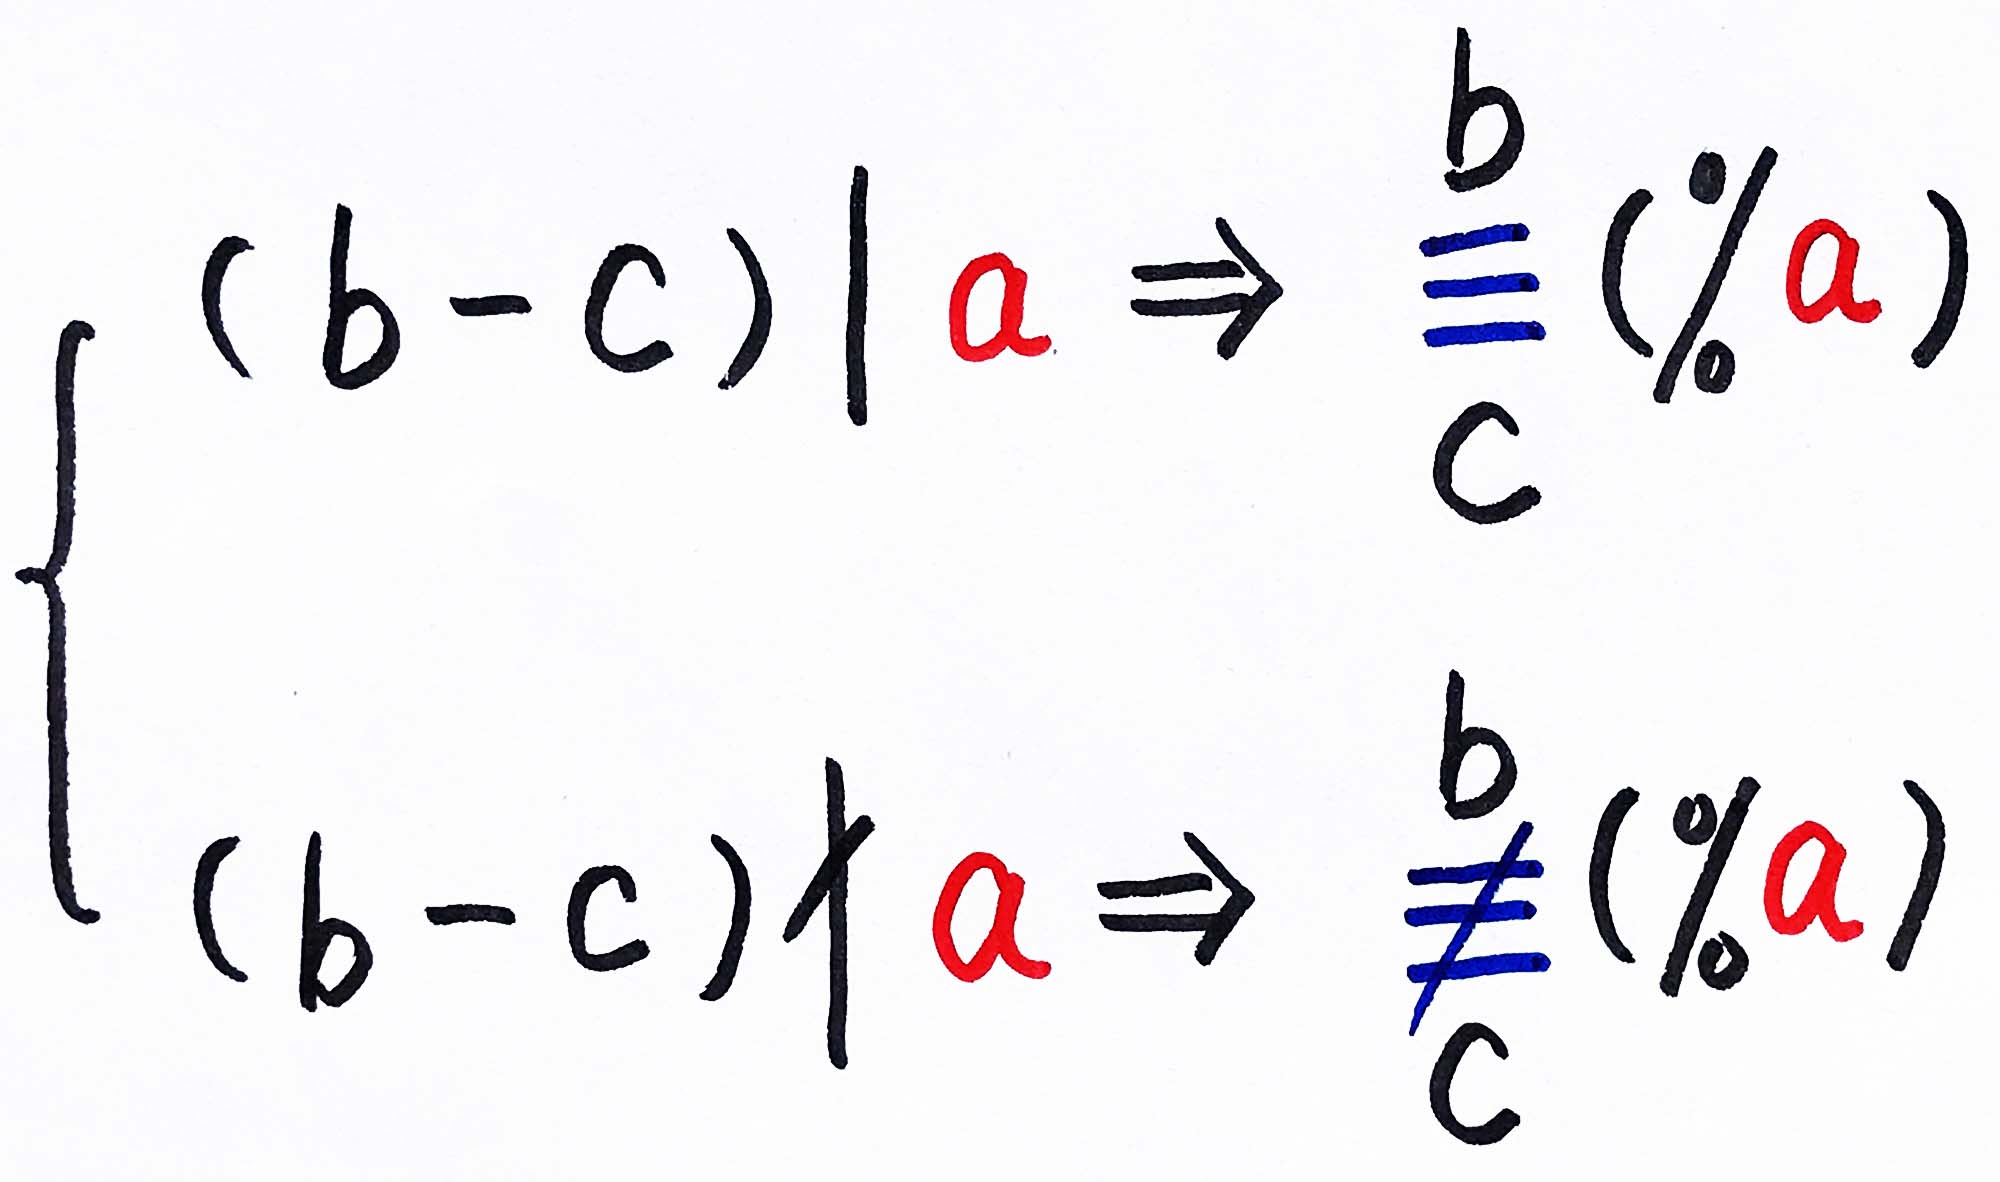 (b-c) | a ⇒ b ≡ c (% a)
(b-c) ∤ a ⇒ b ≢ c (% a)